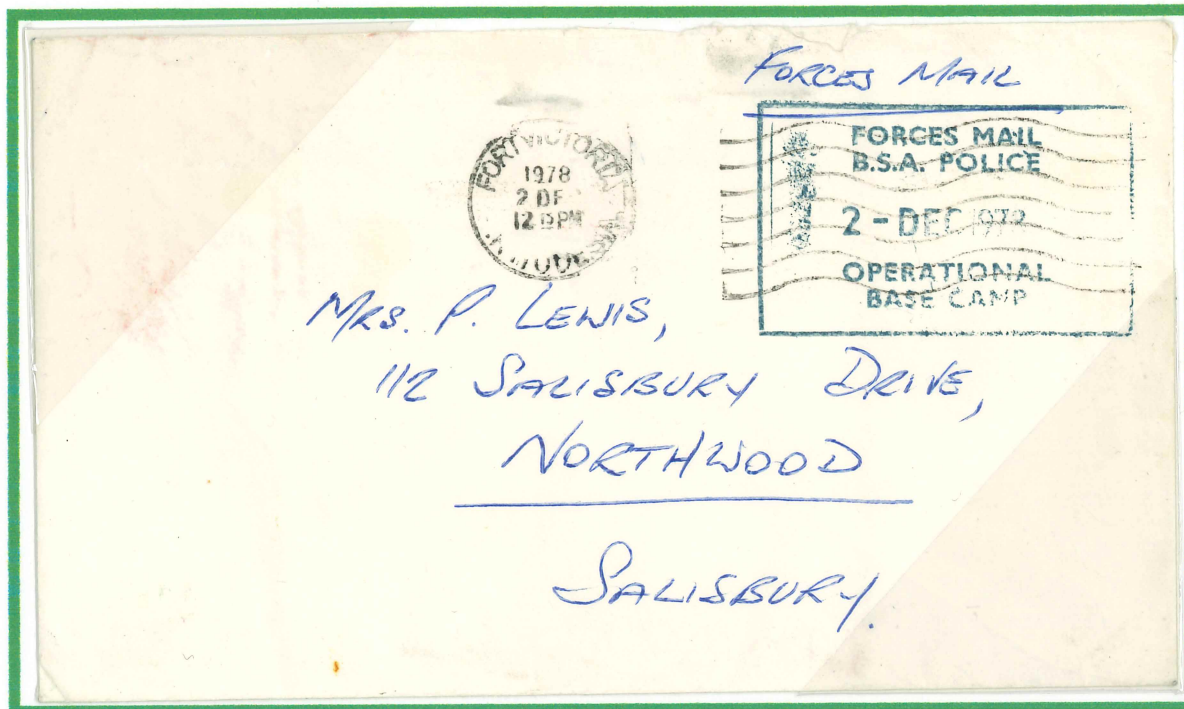 FORCES MAIL
FORT VICTORIA
1978
2 DE
12 15 PM
FORCES MAIL
B.S.A. POLICE
2 - DEC 1978
OPERATIONAL
BASE CAMP
MRS. P. LEWIS,
112 SALISBURY DRIVE,
NORTHWOOD
SALISBURY.